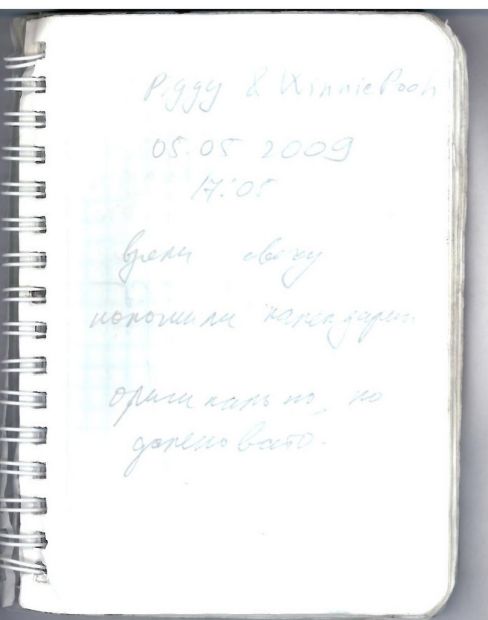 Piggy & WinniePooh
05.05 2009
17:05
взяли свечу
положили календарик
оригинально, но
далековато.